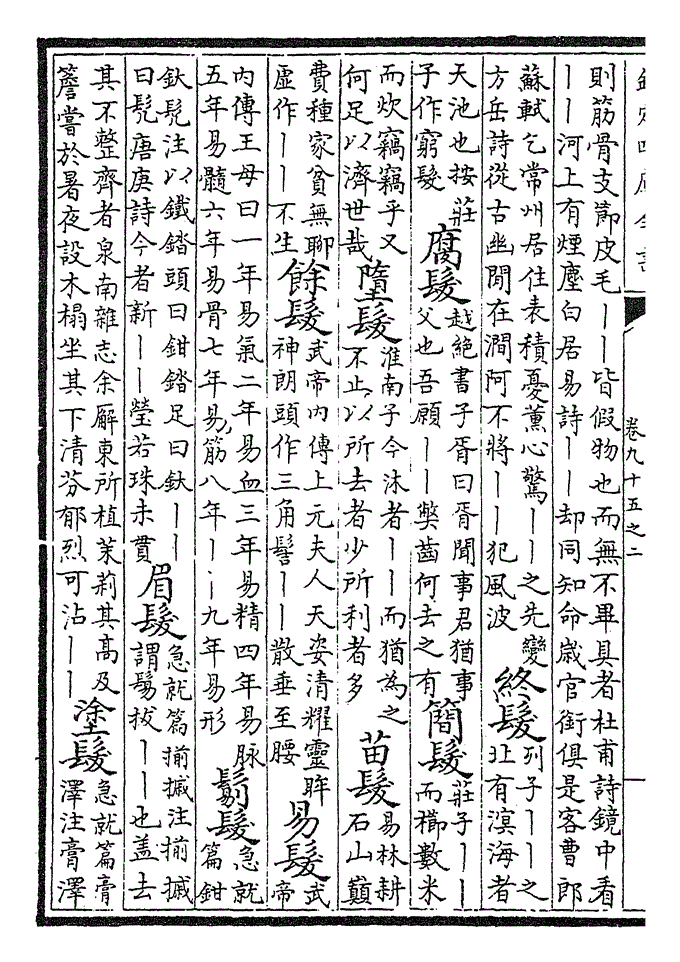 卷九十五之二
則筋骨支節皮毛丨丨皆假物也而無不畢具者杜甫詩鏡中看
丨丨河上有煙塵白居易詩丨丨却同知命嵗官銜俱是客曹郎
蘇軾乞常州居住表積憂薰心驚丨丨之先變
方岳詩從古幽閒在澗阿不將丨丨犯風波
終髮
列子丨丨之
北有溟海者
天池也按莊
子作窮髮
腐髮
越絶書子胥曰胥聞事君猶事
父也吾願丨丨弊齒何去之有
簡髮
莊子丨丨
而櫛數米
而炊竊竊乎又
何足以濟世哉
墮髮
淮南子今沐者丨丨而猶為之
不止以所去者少所利者多
苗髮
易林耕
石山巔
費種家貧無聊
虛作丨丨不生
餘髮
武帝内傳上元夫人天姿清耀靈眸
神朗頭作三角髻丨丨散垂至腰
易髮
武
帝
内傳王母曰一年易氣二年易血三年易精四年易脉
五年易髓六年易骨七年易筋八年丨丨九年易形
鬄髮
急就
篇鉗
釱髡注以鐵錔頭曰鉗錔足曰釱丨丨
曰髡唐庚詩今者新丨丨瑩若珠未貫
眉髮
急就篇揃搣注揃搣
謂鬄拔丨丨也盖去
其不整齊者泉南雜志余廨東所植茉莉其高及
簷嘗於暑夜設木榻坐其下清芬郁烈可沾丨丨
塗髮
急就篇膏
澤注膏澤